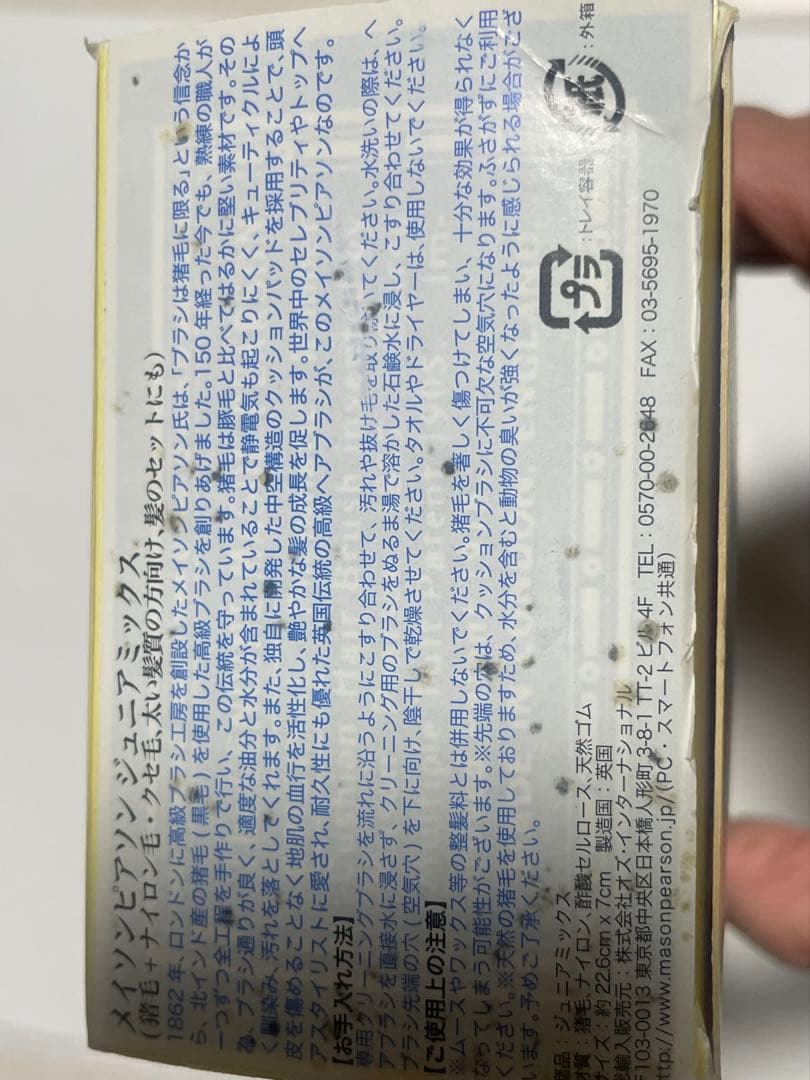 メイソンピアソン ジュニアミックス
(猪毛+ナイロン毛・クセ毛、太い髪質の方向け、髪のセットにも)
1862年、ロンドンに高級ブラシ工房を創設したメイソンピアソン氏は、「ブラシは猪毛に限る」という信念か
ら、北インド産の猪毛(黒毛)を使用した高級ブラシを創りあげました。150年経った今でも、熟練の職人が
一つずつ全工程を手作りで行い、この伝統を守っています。猪毛は豚毛と比べてはるかに堅い素材です。その
為、ブラシ通りが良く、適度な油分と水分が含まれていることで静電気も起こりにくく、キューティクルによ
く馴染み、汚れを落としてくれます。また、独自に開発した中空構造のクッションパッドを採用することで、頭
皮を傷めることなく地肌の血行を活性化し、艶やかな髪の成長を促します。世界中のセレブリティやトップヘ
アスタイリストに愛され、耐久性にも優れた英国伝統の高級ヘアブラシが、このメイソンピアソンなのです。
【お手入れ方法】
専用クリーニングブラシを流れに沿うようにこすり合わせて、汚れや抜け毛を取り除いてください。水洗いの際は、ヘ
アブラシを直接水に浸さず、クリーニング用のブラシをぬるま湯で溶かした石鹸水に浸し、こすり合わせてください。
ブラシ先端の穴(空気穴)を下に向け、陰干しで乾燥させてください。タオルやドライヤーは、使用しないでください。
【ご使用上の注意】
※ムースやワックス等の整髪料とは併用しないでください。猪毛を著しく傷つけてしまい、十分な効果が得られなく
なってしまう可能性がございます。※先端の穴は、クッションブラシに不可欠な空気穴になります。ふさがずにご利用
ください。※天然の猪毛を使用しておりますため、水分を含むと動物の臭いが強くなったように感じられる場合がござ
います。予めご了承ください。
商品:ジュニアミックス
材質:猪毛、ナイロン、酢酸セルロース、天然ゴム
サイズ:約22.6cm x 7cm 製造国:英国
輸入販売元:株式会社オズ・インターナショナル
〒103-0013 東京都中央区日本橋人形町 3-8-1 TT-2 ビル 4F TEL:0570-00-2648 FAX:03-5695-1970
http://www.masonpearson.jp/(PC・スマートフォン共通)
プラ :トレイ容器
紙 :外箱